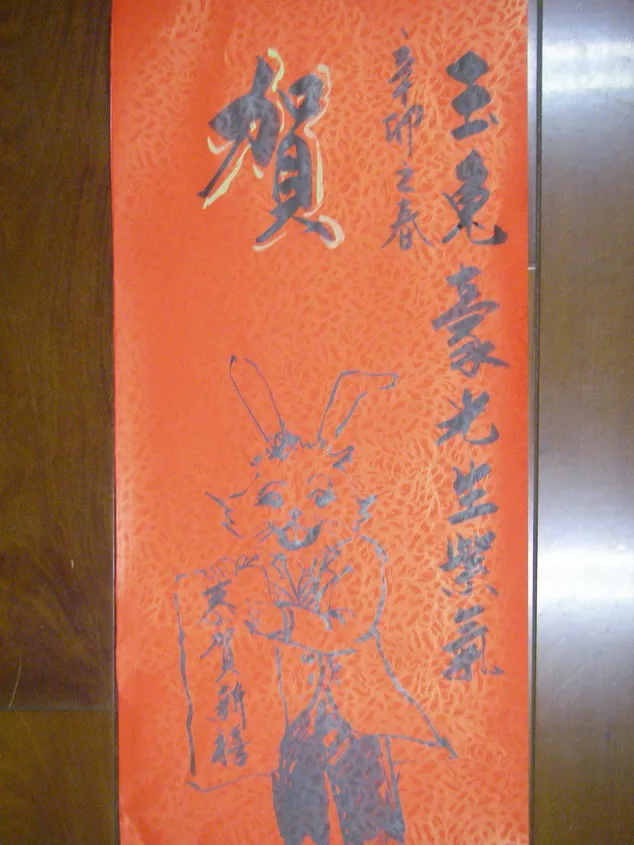 玉兔豪光生紫氣
辛卯之春
賀
恭賀新禧